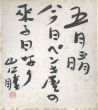 五月晴
今日ペン店の
来る日なり
山口瞳